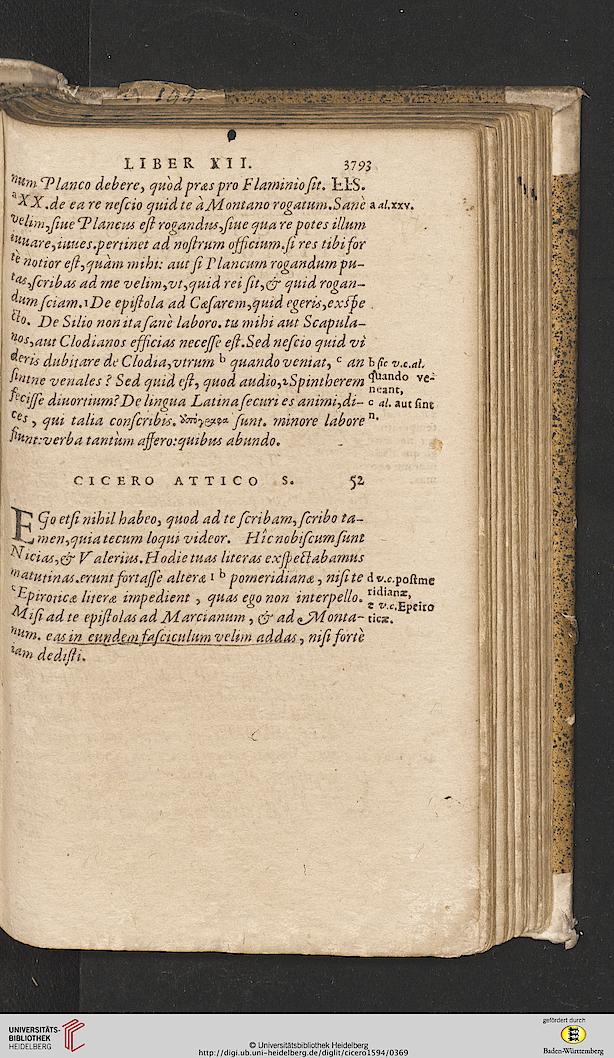 LIBER XII. 3793
num Planco debere, quòd præs pro Flaminio sit. HS.
a XX. de ea re nescio quid te à Montano rogatum. Sanè
a al. xxv.
velim, siue Plancus est rogandus, siue qua re potes illum
iuuare, iuues. pertinet ad nostrum officium. si res tibi for
tè notior est, quàm mihi: aut si Plancum rogandum pu-
tas, scribas ad me velim, vt, quid rei sit, & quid rogan-
dum sciam. 1 De epistola ad Cæsarem, quid egeris, exspe
cto. De Silio non ita sanè laboro. tu mihi aut Scapula-
nos, aut Clodianos efficias necesse est. Sed nescio quid vi
deris dubitare de Clodia, vtrum b quando veniat, c an
b sic v.c. al.
sintne venales? Sed quid est, quod audio, 2 Spintherem
quando ve-
neant,
fecisse diuortium? De lingua Latina securi es animi, di-
c al. aut sint
ces, qui talia conscribis. ἀπόγραφα sunt. minore labore
n.
fiunt: verba tantùm affero: quibus abundo.
CICERO ATTICO S. 52
EGo etsi nihil habeo, quod ad te scribam, scribo ta-
men, quia tecum loqui videor. Hîc nobiscum sunt
Nicias, & Valerius. Hodie tuas literas exspectabamus
matutinas. erunt fortasse alteræ 1 b pomeridianæ, nisi te
d v.c. postme
ridianæ,
c Epiroticæ literæ impedient, quas ego non interpello.
e v.c. Epeiro
Misi ad te epistolas ad Marcianum, & ad Monta-
ticæ.
num. eas in eundem fasciculum velim addas, nisi fortè
iam dedisti.
UNIVERSITÄTS-
BIBLIOTHEK
HEIDELBERG
© Universitätsbibliothek Heidelberg
http://digi.ub.uni-heidelberg.de/diglit/cicero1594/0369
gefördert durch
Baden-Württemberg